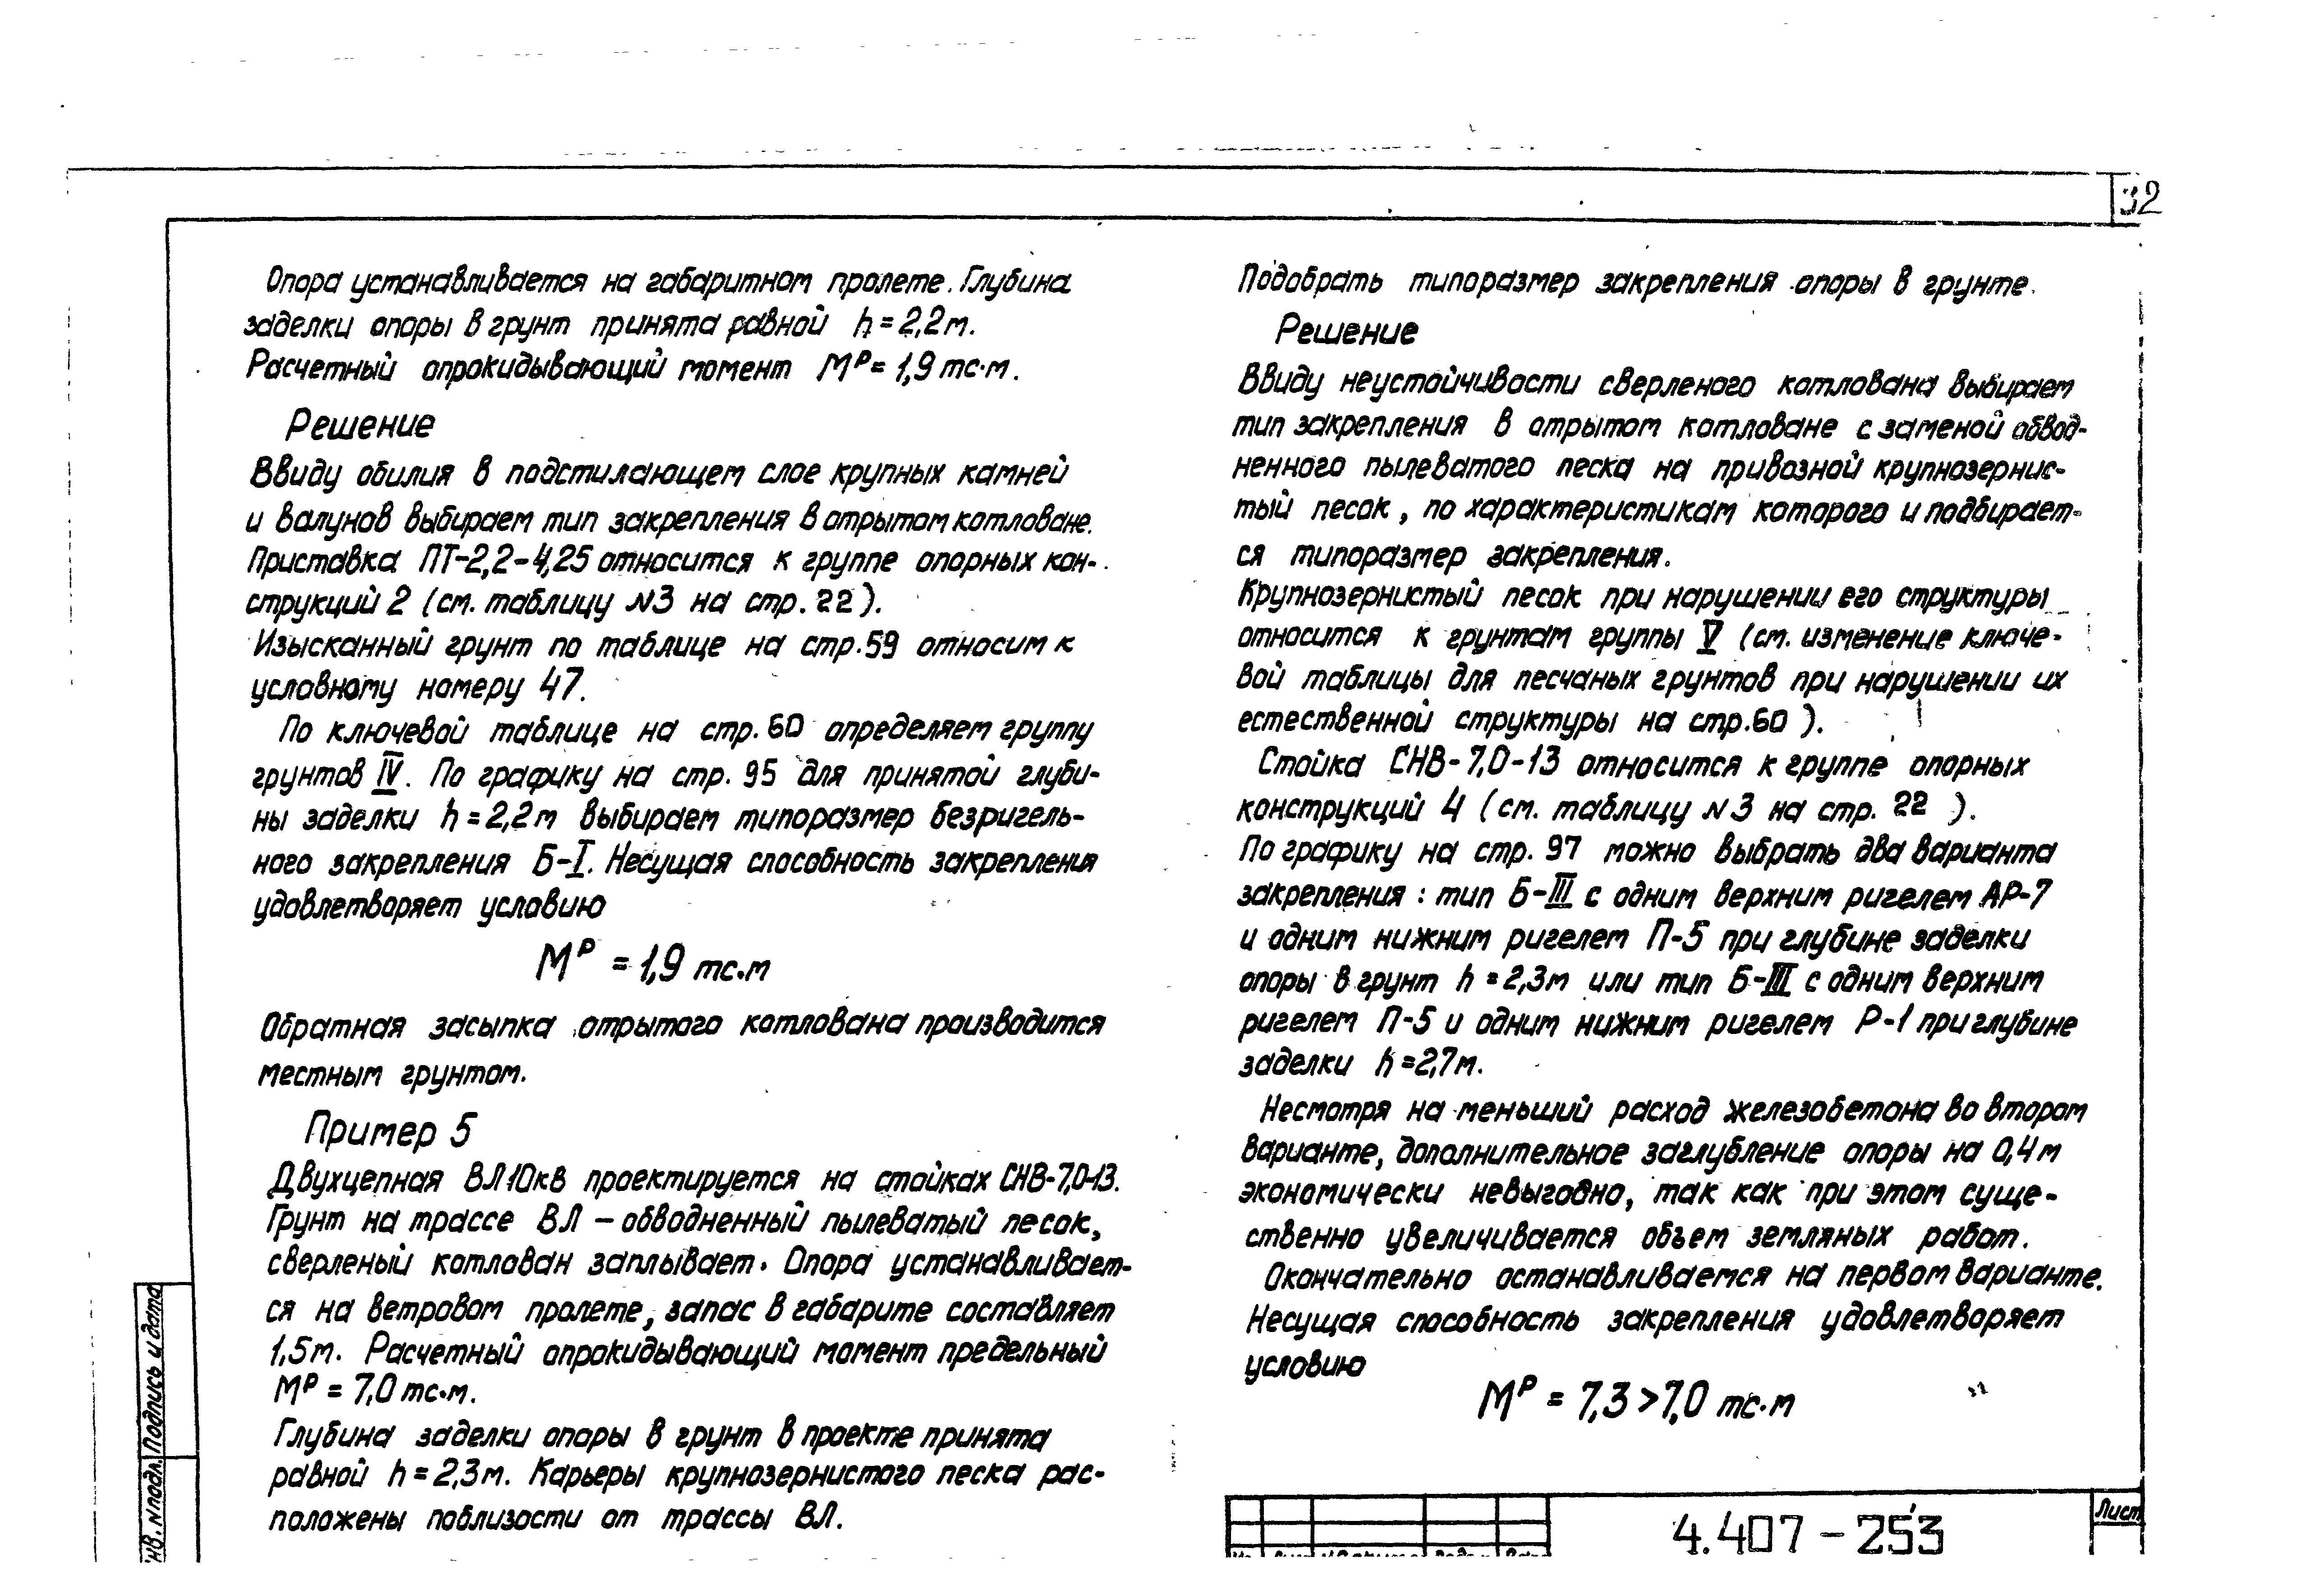 32
Опора устанавливается на габаритном пролете. Глубина
заделки опоры в грунт принята равной h = 2,2 м.
Расчетный опрокидывающий момент Mᴾ = 1,9 тс·м.
Решение
Ввиду обилия в подстилающем слое крупных камней
и валунов выбираем тип закрепления в отрытом котловане.
Приставка ПТ-2,2-4,25 относится к группе опорных кон-
струкций 2 (см. таблицу №3 на стр. 22).
Изысканный грунт по таблице на стр. 59 относим к
условному номеру 47.
По ключевой таблице на стр. 60 определяем группу
грунтов IV. По графику на стр. 95 для принятой глуби-
ны заделки h = 2,2 м выбираем типоразмер безригель-
ного закрепления Б-I. Несущая способность закрепления
удовлетворяет условию
Mᴾ = 1,9 тс·м
Обратная засыпка отрытого котлована производится
местным грунтом.
Пример 5
Двухцепная ВЛ 10кВ проектируется на стойках СНВ-7,0-13.
Грунт на трассе ВЛ – обводненный пылеватый песок,
сверленый котлован заплывает. Опора устанавливает-
ся на ветровом пролете, запас в габарите составляет
1,5 м. Расчетный опрокидывающий момент предельный
Mᴾ = 7,0 тс·м.
Глубина заделки опоры в грунт в проекте принята
равной h = 2,3 м. Карьеры крупнозернистого песка рас-
положены поблизости от трассы ВЛ.
Подобрать типоразмер закрепления опоры в грунте.
Решение
Ввиду неустойчивости сверленого котлована выбираем
тип закрепления в отрытом котловане с заменой обвод-
ненного пылеватого песка на привозной крупнозернис-
тый песок, по характеристикам которого и подбирает-
ся типоразмер закрепления.
Крупнозернистый песок при нарушении его структуры
относится к грунтам группы V (см. изменение ключе-
вой таблицы для песчаных грунтов при нарушении их
естественной структуры на стр. 60).
Стойка СНВ-7,0-13 относится к группе опорных
конструкций 4 (см. таблицу №3 на стр. 22).
По графику на стр. 97 можно выбрать два варианта
закрепления: тип Б-III с одним верхним ригелем АР-7
и одним нижним ригелем П-5 при глубине заделки
опоры в грунт h = 2,3 м или тип Б-III с одним верхним
ригелем П-5 и одним нижним ригелем Р-1 при глубине
заделки h = 2,7 м.
Несмотря на меньший расход железобетона во втором
варианте, дополнительное заглубление опоры на 0,4 м
экономически невыгодно, так как при этом суще-
ственно увеличивается объем земляных работ.
Окончательно останавливается на первом варианте.
Несущая способность закрепления удовлетворяет
условию
Mᴾ = 7,3 > 7,0 тс·м
Подпись и дата
№ подл.
4.407-253
Лист